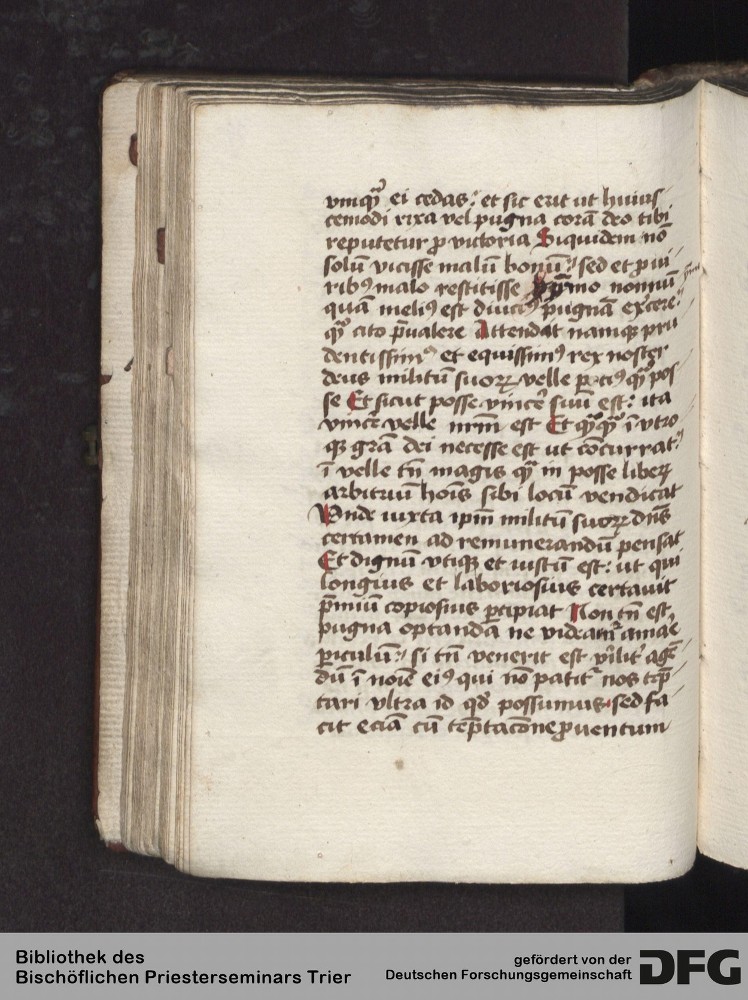 vniqꝫ̃ ei cedas: et sic erit ut huius
cemodi rixa vel pugna corā deo tibi
reputetur ꝓ victoria Siquidem nō
solū vicisse malū bonū: sed et ꝓ vi
ribꝰ malo restitisse nonnū
quā meliꝰ est diuciꝰ pugnā exꝰcere
qꝫ̃ cito p̄ualere Attendat namqꝫ pru
dentissimꝰ et equissimꝰ rex noster
deus militū suoꝝ velle pociꝰ qꝫ̃ pos
se Et sicut posse vincē suū est: ita
vincē velle nr̄m est Et qꝫ̃qꝫ̃ ī vtro
qꝫ grām dei necesse est ut cōcurrat
ī velle tn̄ magis qꝫ̃ in posse liberꝝ
arbitriū hoīs sibi locū vendicat
Vnde iuxta ip̄m militū suoꝝ dn̄s
certamen ad remunerandū pensat
Et dignū vtiqꝫ et iustū est: ut qui
longius et laboriosius certauit
p̄miū copiosius ꝑcipiat Non tn̄ est
pugna optanda ne videamr̄ amar̄e
ꝑiculū: si tn̄ venerit est vīrilit̄ agē
dū ī noīe eiꝰ qui nō patit̄ nos tēp
tari vltra id qd̄ possumus sed fa
cit eciā cū tēptacōne ꝓuentum
Bibliothek des
Bischöflichen Priesterseminars Trier
gefördert von der
Deutschen Forschungsgemeinschaft
DFG